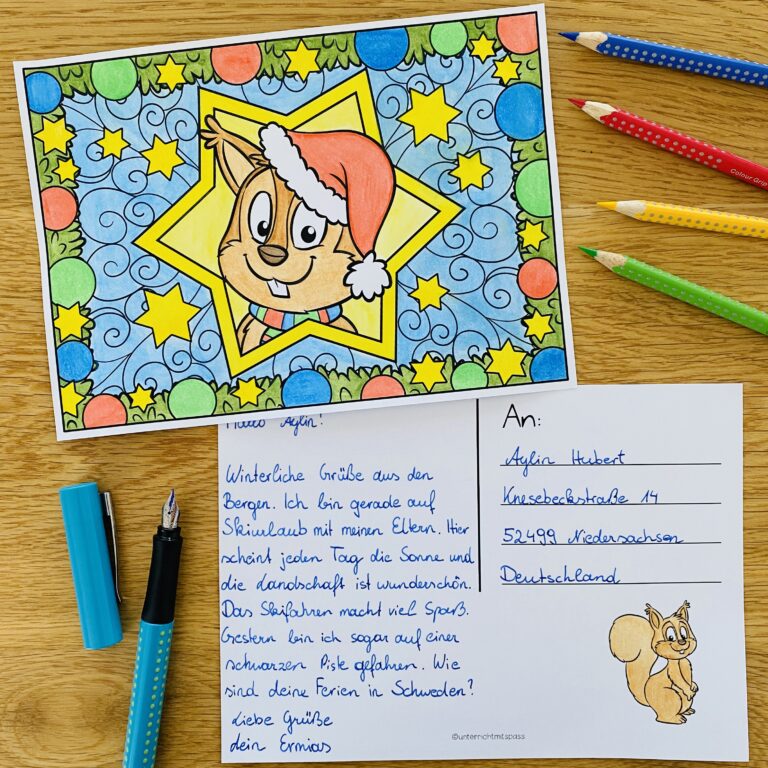 Hallo Aylin!
Winterliche Grüße aus den
Bergen. Ich bin gerade auf
Skiurlaub mit meinen Eltern. Hier
scheint jeden Tag die Sonne und
die Landschaft ist wunderschön.
Das Skifahren macht viel Spaß.
Gestern bin ich sogar auf einer
schwarzen Piste gefahren. Wie
sind deine Ferien in Schweden?
Liebe Grüße
dein Ermias
An:
Aylin Hubert
Knesebeckstraße 14
52499 Niedersachsen
Deutschland
©unterrichtmitspass
Colour Grip